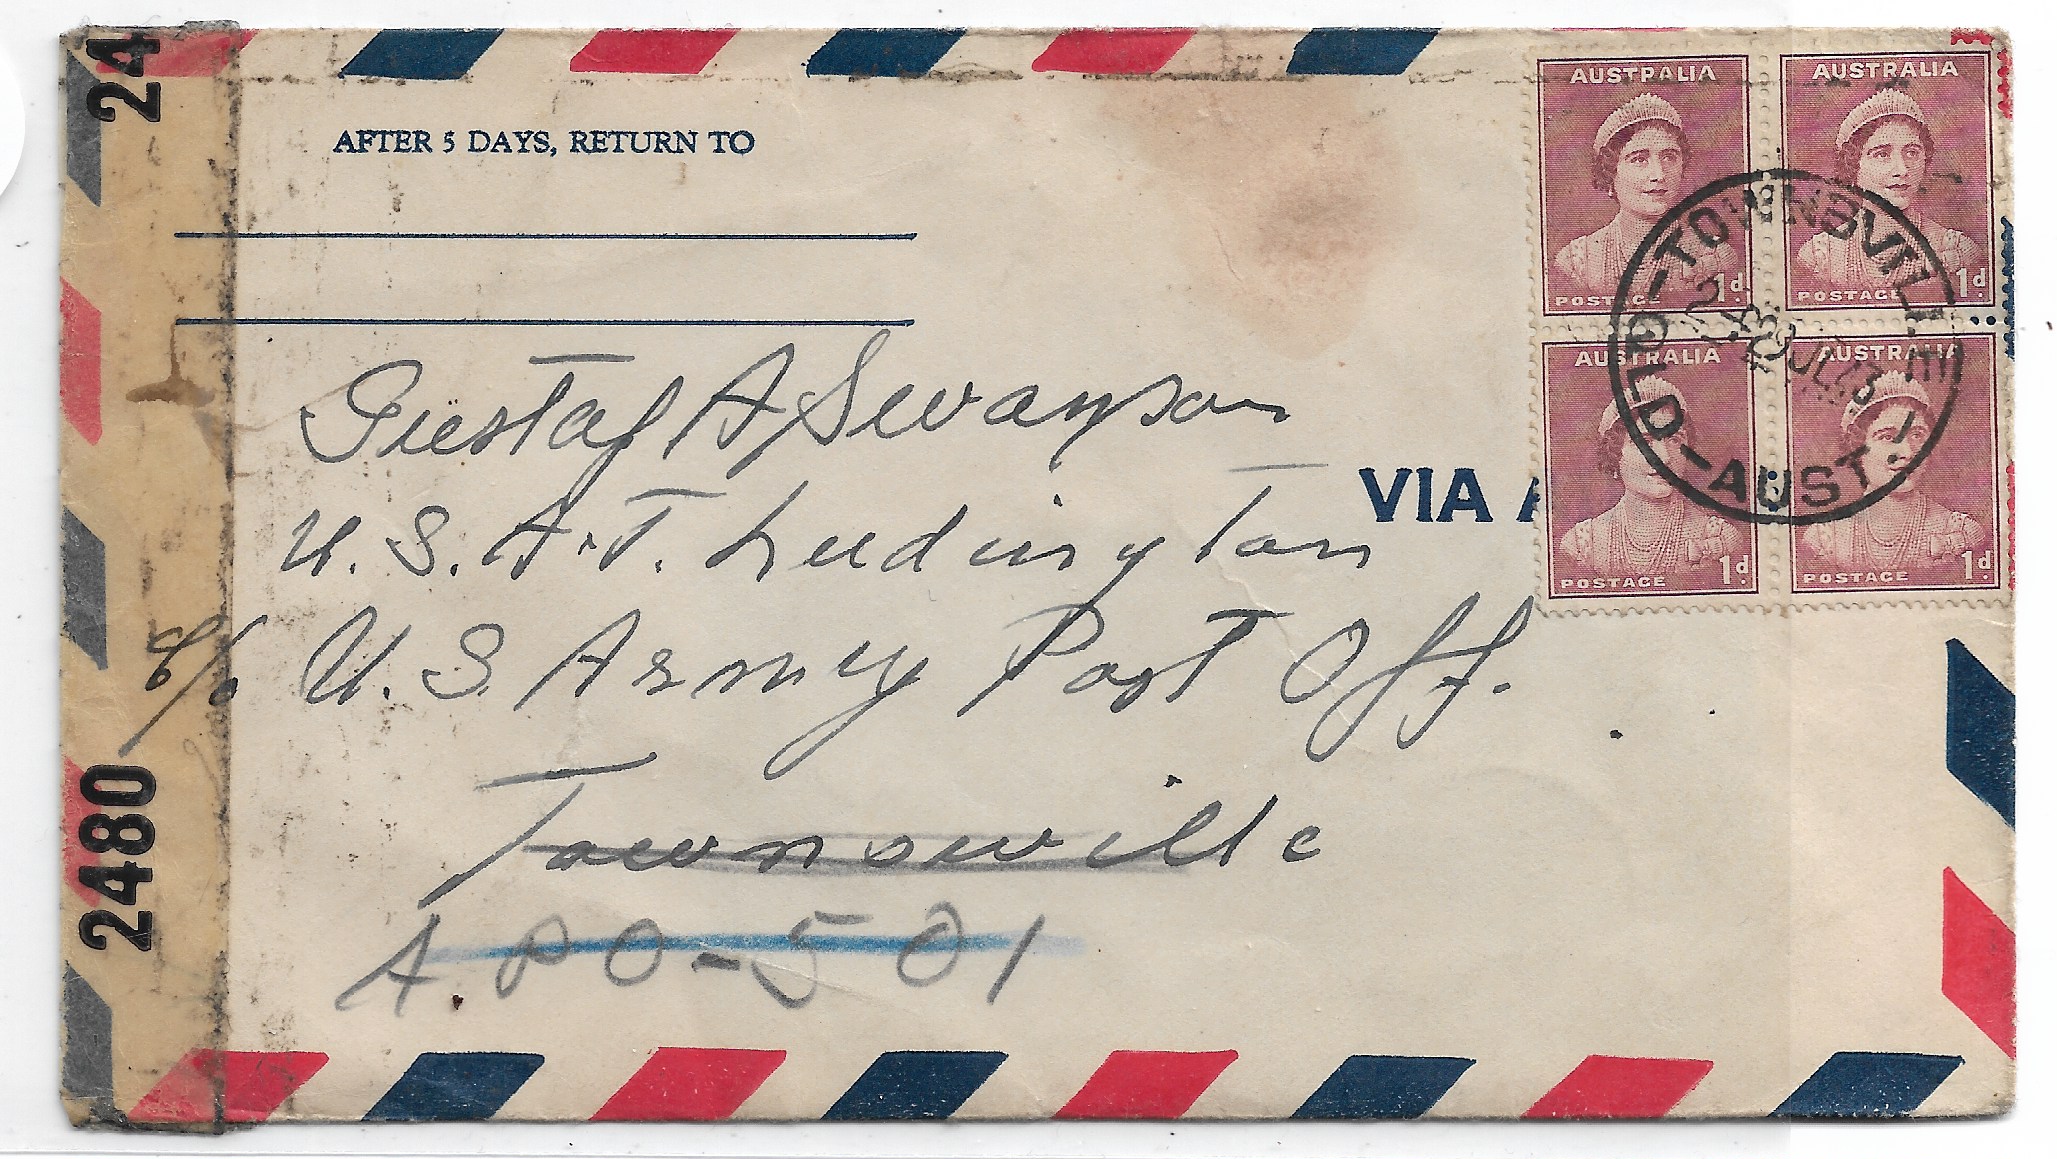 AFTER 5 DAYS, RETURN TO
AUSTRALIA
POSTAGE 1d.
AUSTRALIA
POSTAGE 1d.
AUSTRALIA
POSTAGE 1d.
AUSTRALIA
POSTAGE 1d.
TOWNSVILLE
QLD-AUST.
29JL43
VIA A
Gustaf A Swanson
U.S.A.T. Ludington
c/o U.S. Army Post Off.
Townsville
A.PO-501
24
2480